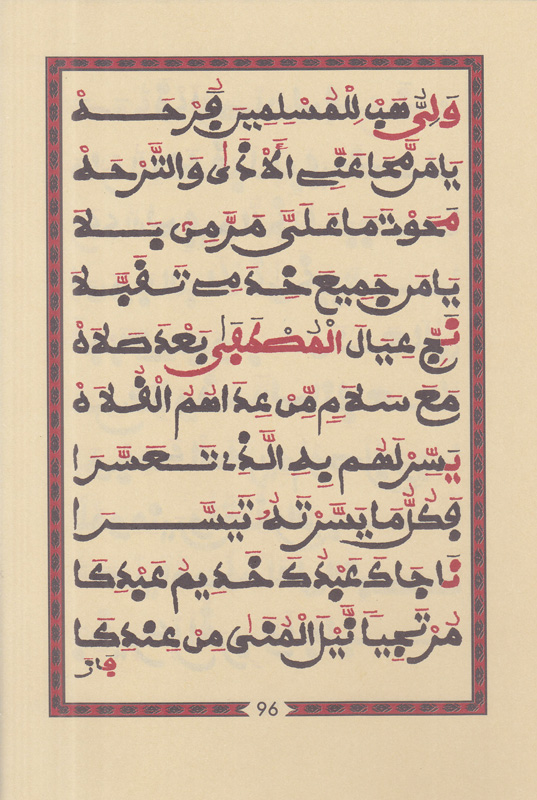 وَلِيَّ هَبْ لِلْمُسْلِمِينَ فَرْحَهْ
يَا مَنْ مَّحَا عَنِّى الْأَذَى وَالتَّرْحَهْ
مَحَوْتَ مَا عَلَىَّ مَرَّ مِن بَلَا
يَا مَن جَمِيعَ خِدَمِى تَقَبَّلَا
نَجِّ عِيَالَ الْمُصْطَفَى بَعْدَ صَلَاهْ
مَعَ سَلَامٍ مِّنْ عِدَاهُمُ الْقُلَاهْ
يَسِّرْ لَهُم بِهِ الَّذِى تَعَسَّرَا
فَكُلُّ مَا يَسَّرْتَهُ تَيَسَّرَا
نَاجَاكَ عَبْدُكَ خَدِيمُ عَبْدِكَا
مُرْتَجِياً نَّيْلَ الْمُنَى مِنْ عِندِكَا
فَازَ
96